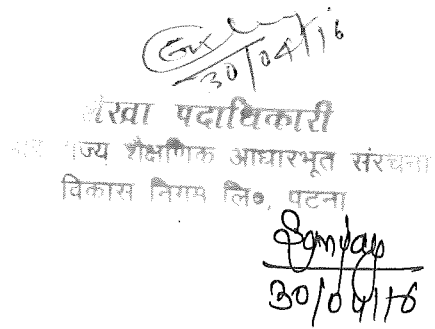 30/04/16
लेखा पदाधिकारी
राज्य शैक्षणिक आधारभूत संरचना
विकास निगम लि०, पटना
Sanjay
30/04/16